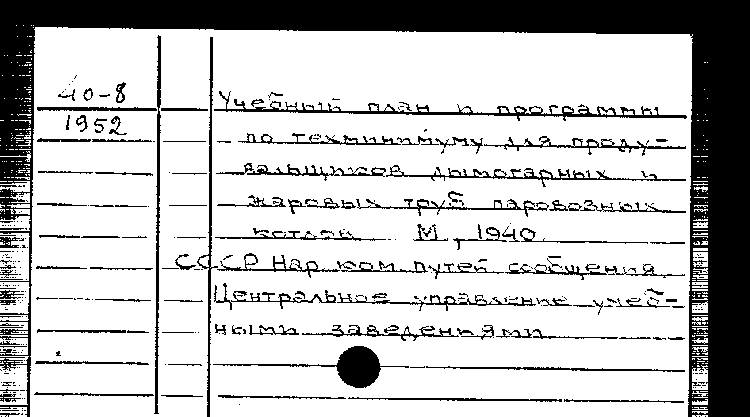 40-8
1952
Учебный план и программы
по техминимуму для проду-
вальщиков дымогарных и
жаровых труб паровозных
котлов М, 1940.
СССР Нар.ком.путей сообщения.
Центральное управление учеб-
ными заведениями